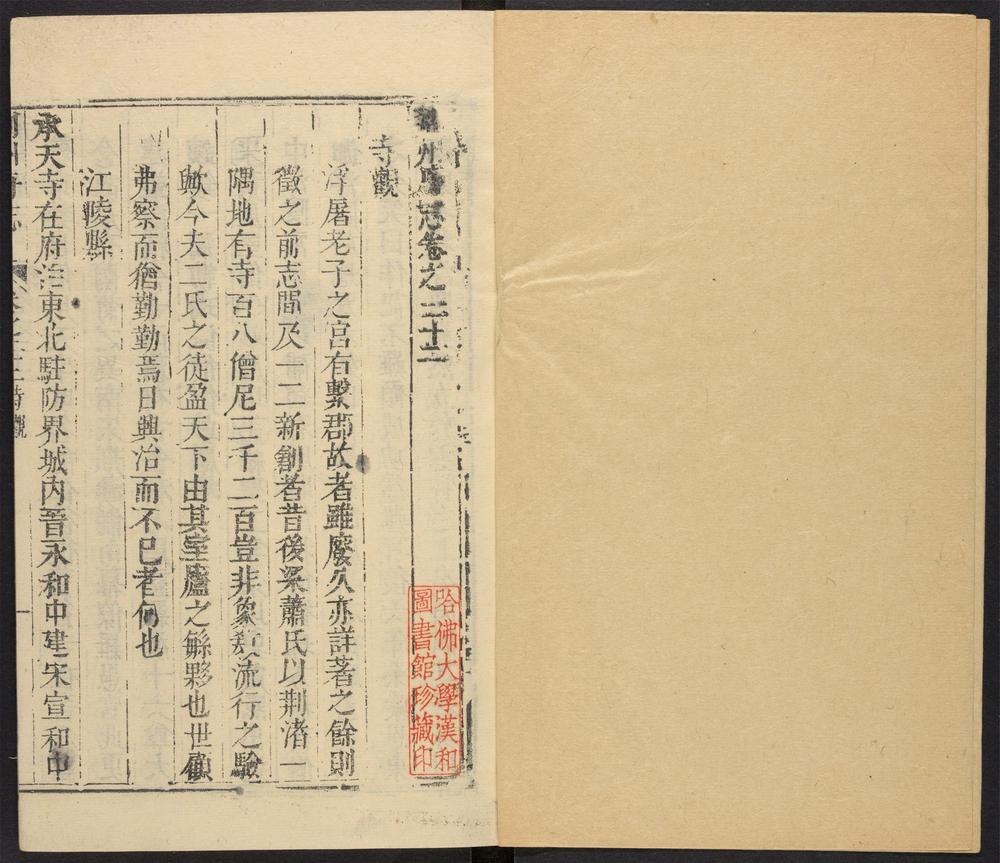 荊州府志卷之二十三
寺觀
浮屠老子之宫有繫郡故者雖廢久亦詳著之餘則
徵之前志間及一二新創者昔後梁蕭氏以荆渚一
隅地有寺百八僧尼三千二百豈非象教流行之驗
歟今夫二氏之徒盈天下由其室廬之緐夥也世顧
弗察而僧勤勤焉日興治而不已者何也
江陵縣
承天寺在府治東北駐防界城内晉永和中建宋宣和中
寺觀
一
哈佛大學漢和
圖書館珍藏印